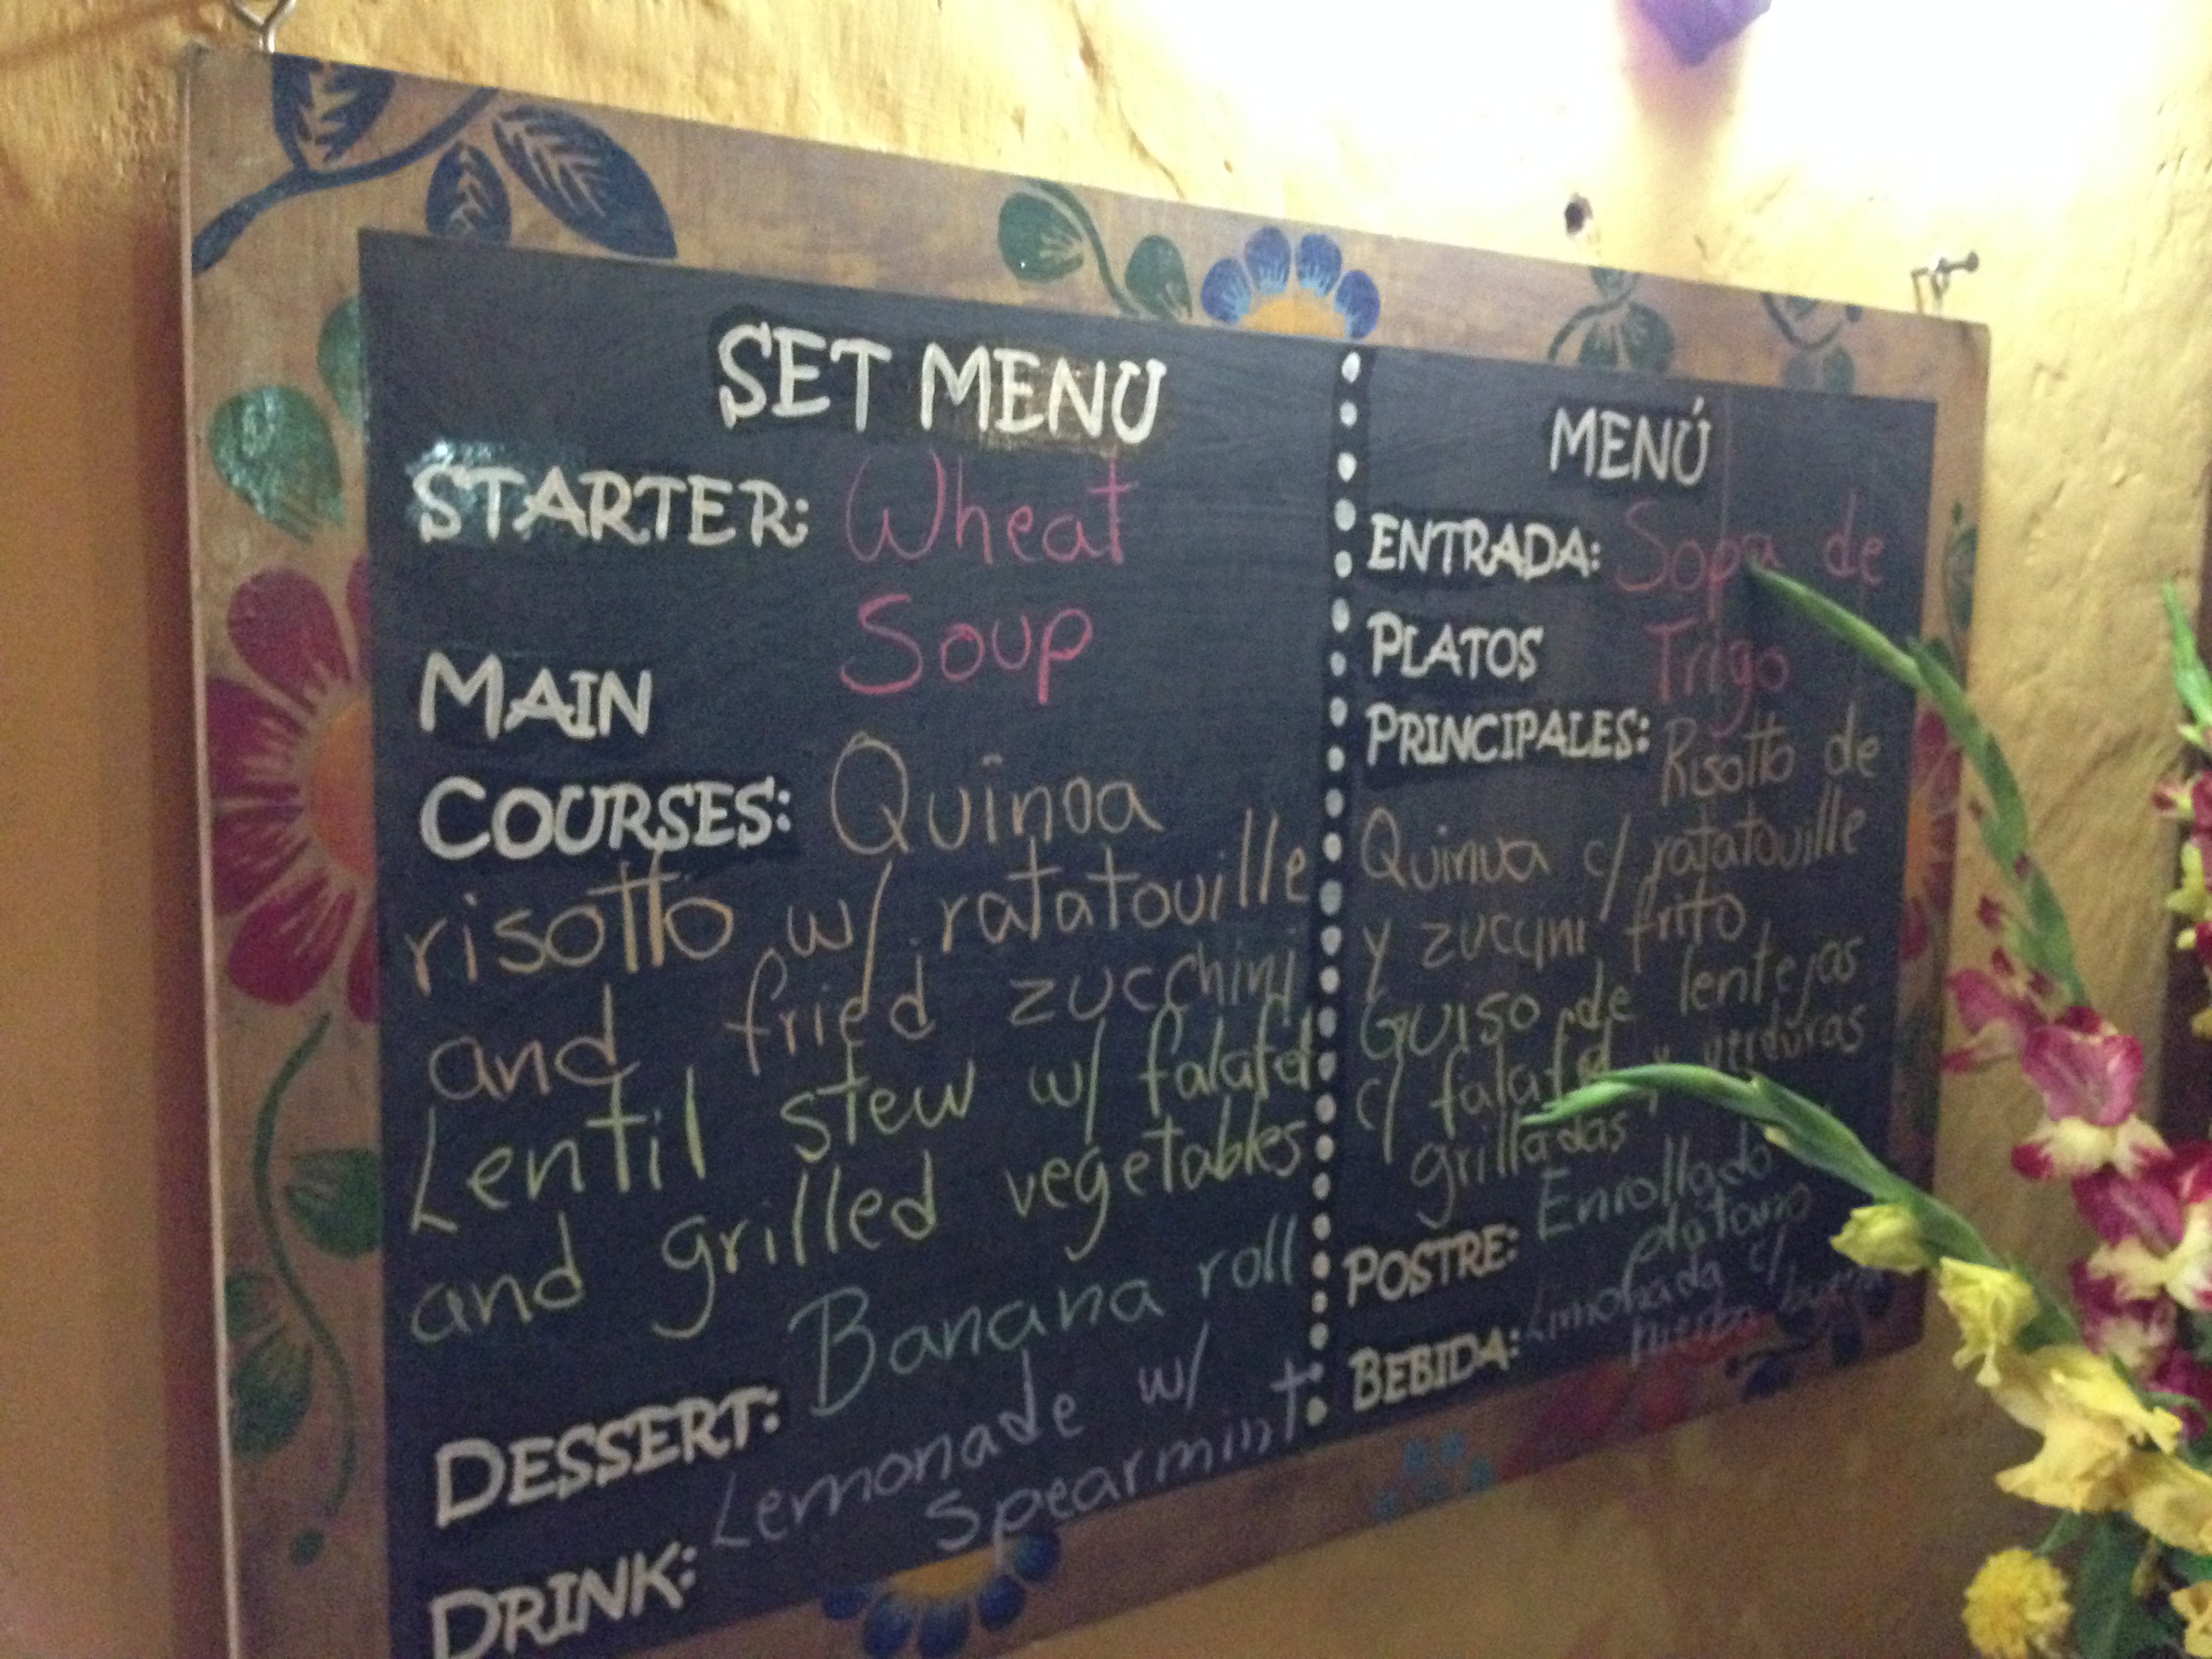 SET MENU
STARTER: Wheat
Soup
MAIN
COURSES: Quinoa
risotto w/ ratatouille
and fried zucchini
Lentil stew w/ falafel
and grilled vegetables
DESSERT: Banana roll
DRINK: Lemonade w/
spearmint
MENÚ
ENTRADA: Sopa de
PLATOS Trigo
PRINCIPALES: Risotto de
Quinua c/ ratatouille
y zuccini frito
Guiso de lentejas
c/ falafel y verduras
grilladas
POSTRE: Enrollado
platano
BEBIDA: Limonada c/
hierba buena